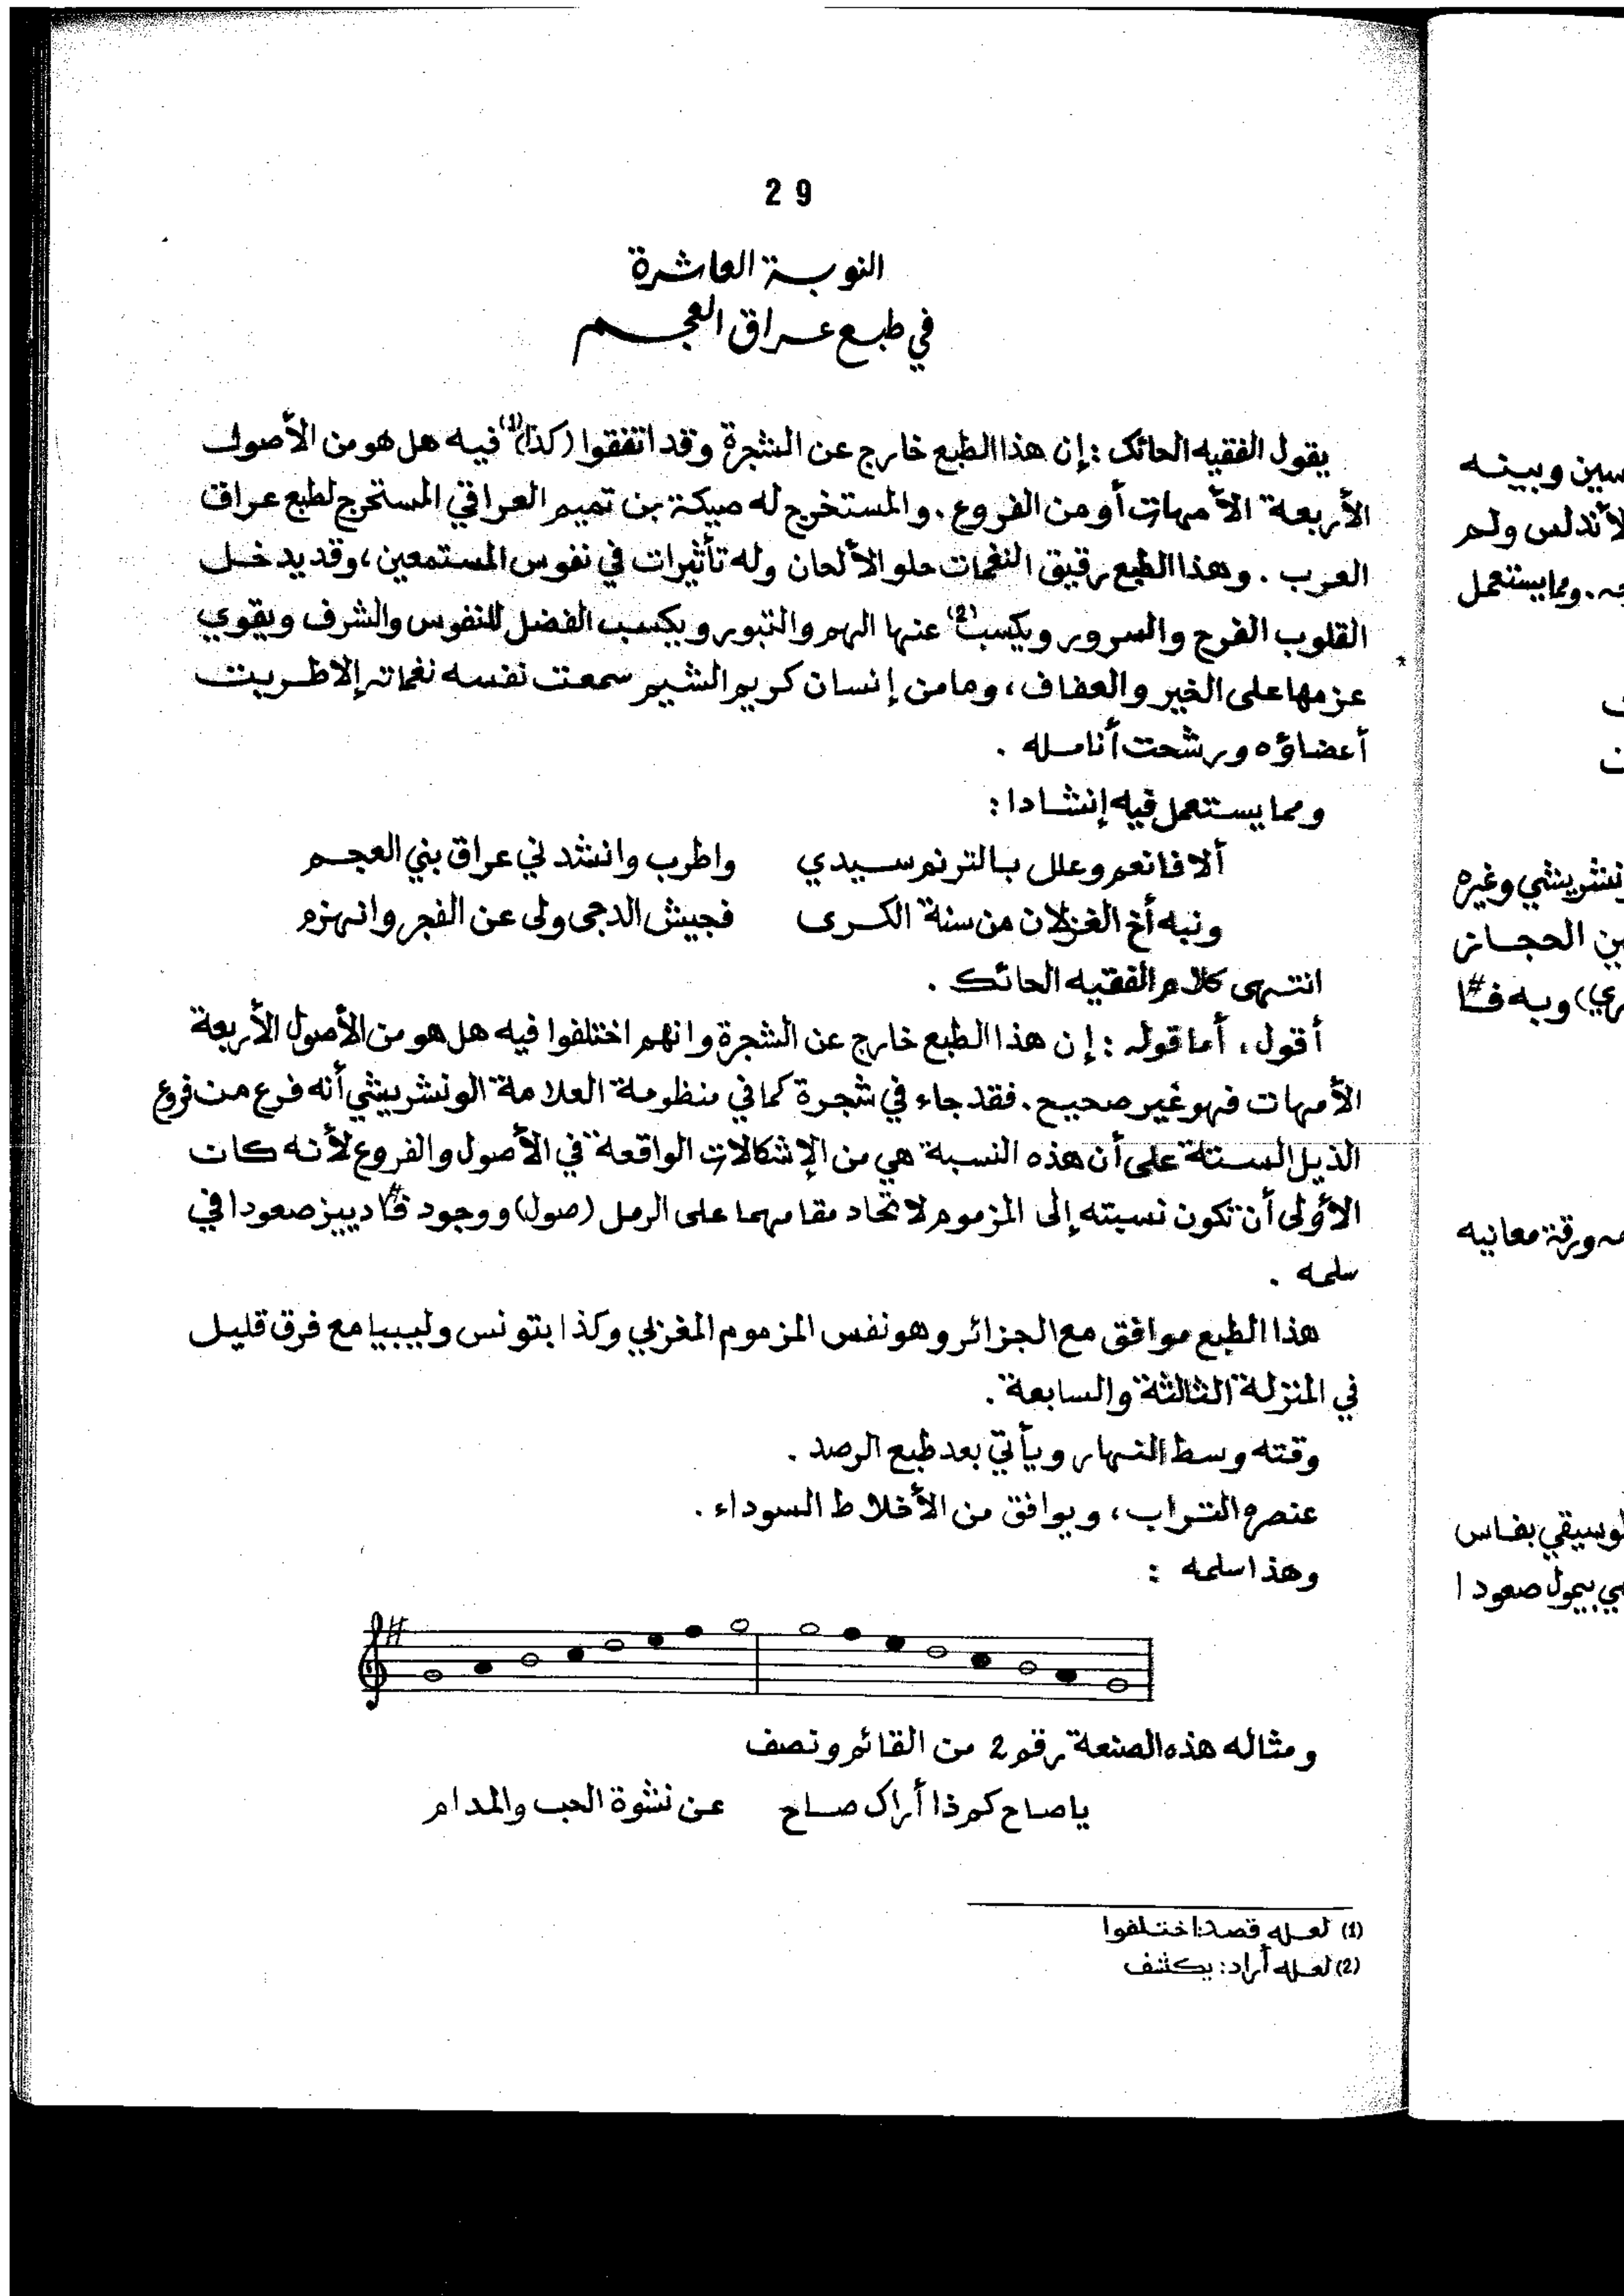 29
النوبة العاشرة
في طبع عراق العجم
يقول الفقيه الحائك : إن هذا الطبع خارج عن الشجرة وقد اتفقوا (كذا)(1) فيه هل هو من الأصول
الأربعة الأمهات أو من الفروع . والمستخرج له صيكة بن تميم العراقي المستخرج لطبع عراق
العرب . وهذا الطبع رقيق النغمات حلو الألحان وله تأثيرات في نفوس المستمعين ، وقد يدخل
القلوب الفرح والسرور ويكسب(2) عنها الهم والتبور ويكسب الفضل للنفوس والشرف ويقوي
عزمها على الخير والعفاف ، وما من إنسان كريم الشيم سمعت نفسه نغماته إلا طربت
أعضاؤه ورشحت أنامله .
ومما يستعمل فيه إنشادا :
ألا فانعم وعلل بالترنم سيدي واطرب وانشد ني عراق بني العجم
ونبه أخ الغزلان من سنة الكرى فجيش الدجى ولى عن الفجر وانهزم
انتهى كلام الفقيه الحائك .
أقول ، أما قوله : إن هذا الطبع خارج عن الشجرة وانهم اختلفوا فيه هل هو من الأصول الأربعة
الأمهات فهو غير صحيح . فقد جاء في شجرة كما في منظومة العلامة الونشريشي أنه فرع من فروع
الذيل الستة على أن هذه النسبة هي من الإشكالات الواقعة في الأصول والفروع لأنه كان
الأولى أن تكون نسبته إلى المزموم لاتحاد مقامهما على الرمل (صول) ووجود فا# دييز صعودا في
سلمه .
هذا الطبع موافق مع الجزائر وهو نفس المزموم المغربي وكذا بتونس وليبيا مع فرق قليل
في المنزلة الثالثة والسابعة .
وقته وسط النهار ويأتي بعد طبع الرصد .
عنصره التراب ، ويوافق من الأخلاط السوداء .
وهذا سلمه :
ومثاله هذه الصنعة رقم 2 من القائم ونصف
يا صاح كم ذا أراك صاح عن نشوة الحب والمدام
(1) لعله قصد: اختلفوا
(2) لعله أراد: يكشف
سين وبينه
لأندلس ولم
جه . ومما يستعمل
ونشريشي وغيره
ين الحجاز
ري) وبه فا#
ه ورقة معانيه
لموسيقي بفاس
ي بيمول صعودا